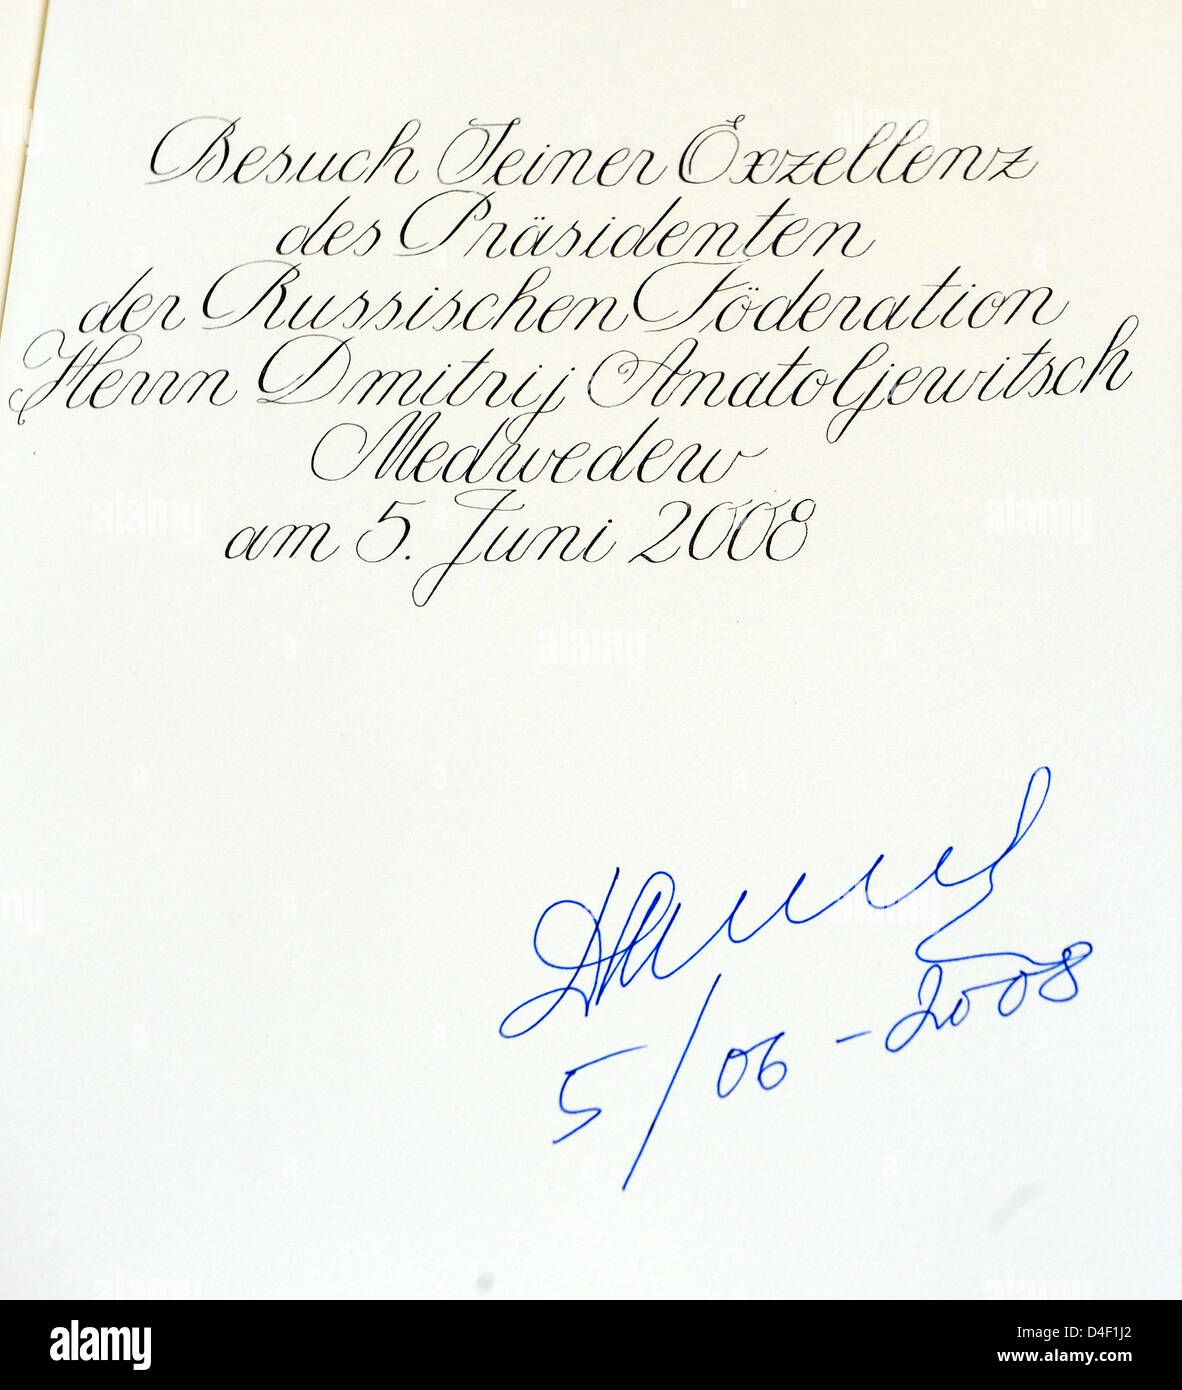 Besuch Seiner Exzellenz
des Präsidenten
der Russischen Föderation
Herrn Dmitrij Anatoljewitsch
Medwedew
am 5. Juni 2008
5/06-2008
alamy
Image ID: D4F1J2
www.alamy.com